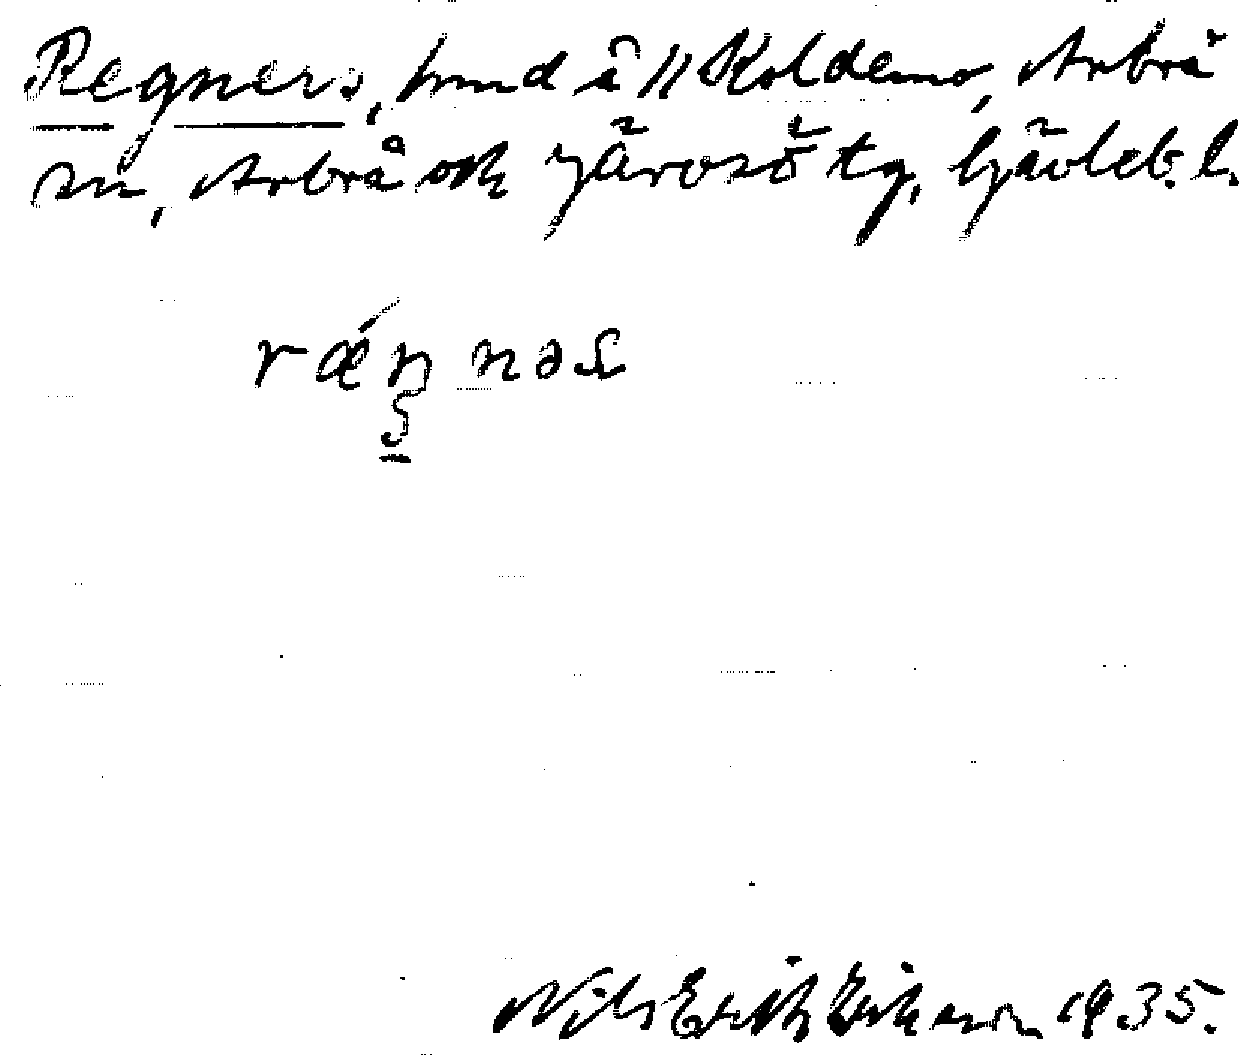 Regners, hmd å // Koldemo, Arbrå
sn, Arbrå och Järvsö tg, Gävleb. l.
ræ´ŋnəs
Nils Erik Eriksson 1935.